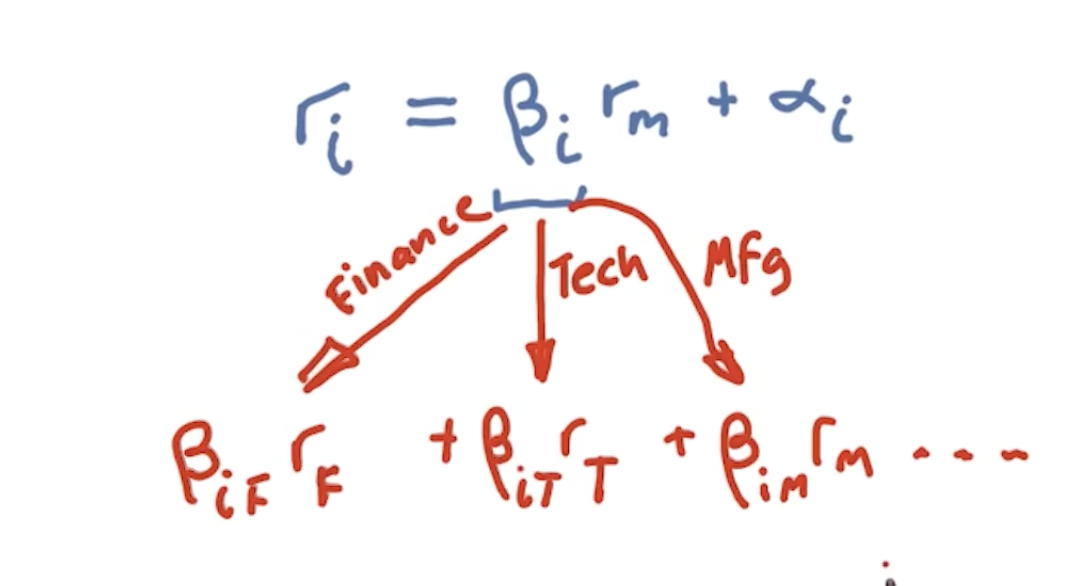 rᵢ = βᵢ rₘ + αᵢ
Finance Tech Mfg
β_{iF} r_F + β_{iT} r_T + β_{iM} r_M - - - -